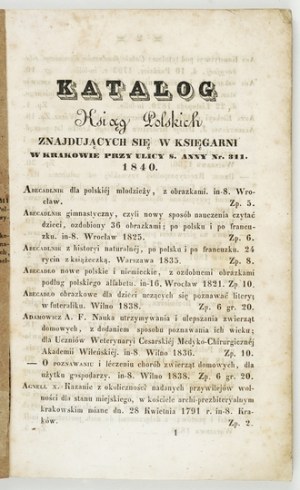 KATALOG
Ksiąg Polskich
ZNAJDUJĄCYCH SIĘ W KSIĘGARNI
W KRAKOWIE PRZY ULICY S. ANNY Nr. 311.
1840.
ABECADLNIK dla polskiéj młodzieży, z obrazkami. in-8. Wro-
cław. Zp. 5.
ABECADLNIK gimnastyczny, czyli nowy sposób nauczenia czytać
dzieci, ozdobiony 36 obrazkami; po polsku i po francu-
zku. in-8. Wrocław 1825. Zp. 6.
ABECADLNIK z historyi naturalnéj, po polsku i po francuzku. 24
rycin z książeczką. Warszawa 1835. Zp. 8.
ABECADŁO nowe polskie i niemieckie, z ozdobnemi obrazkami
podług polskiego alfabetu. in-16. Wrocław 1821. Zp. 10.
ABECADŁO obrazkowe dla dzieci uczących się poznawać litery
w futeraliku. Wilno 1838. Zp. 6 gr. 20.
ADAMOWICZ A. F. Nauka utrzymywania i ulepszania zwierząt
domowych, z dodaniem sposobu poznawania ich wieku;
dla Uczniów Weterynaryi Cesarskiéj Medyko-Chirurgicznéj
Akademii Wileńskiéj. in-8. Wilno 1836. Zp. 10.
— O poznawaniu i léczeniu chorób zwierząt domowych, dla
użytku gospodarzy. in-8. Wilno 1838. Zp. 6 gr. 20.
x. Kazanie z okoliczności nadanych przywilejów wol-
ności dla stanu miejskiego, w kościele archi-prezbiteryalnym
krakowskim miane dn. 28 Kwietnia 1791 r. in-8. Kra-
ków. Zp. 2.
1